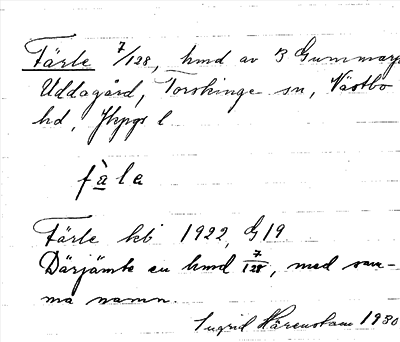 Färle 7/128, hmd av 3 Gummarps
Uddagård, Torskinge sn, Västbo
hd, Jkpgs l
fàla
Färle kb 1922, G19
Därjämte en hmd 7/128, med sam-
ma namn.
Ingrid Härenstam 1930